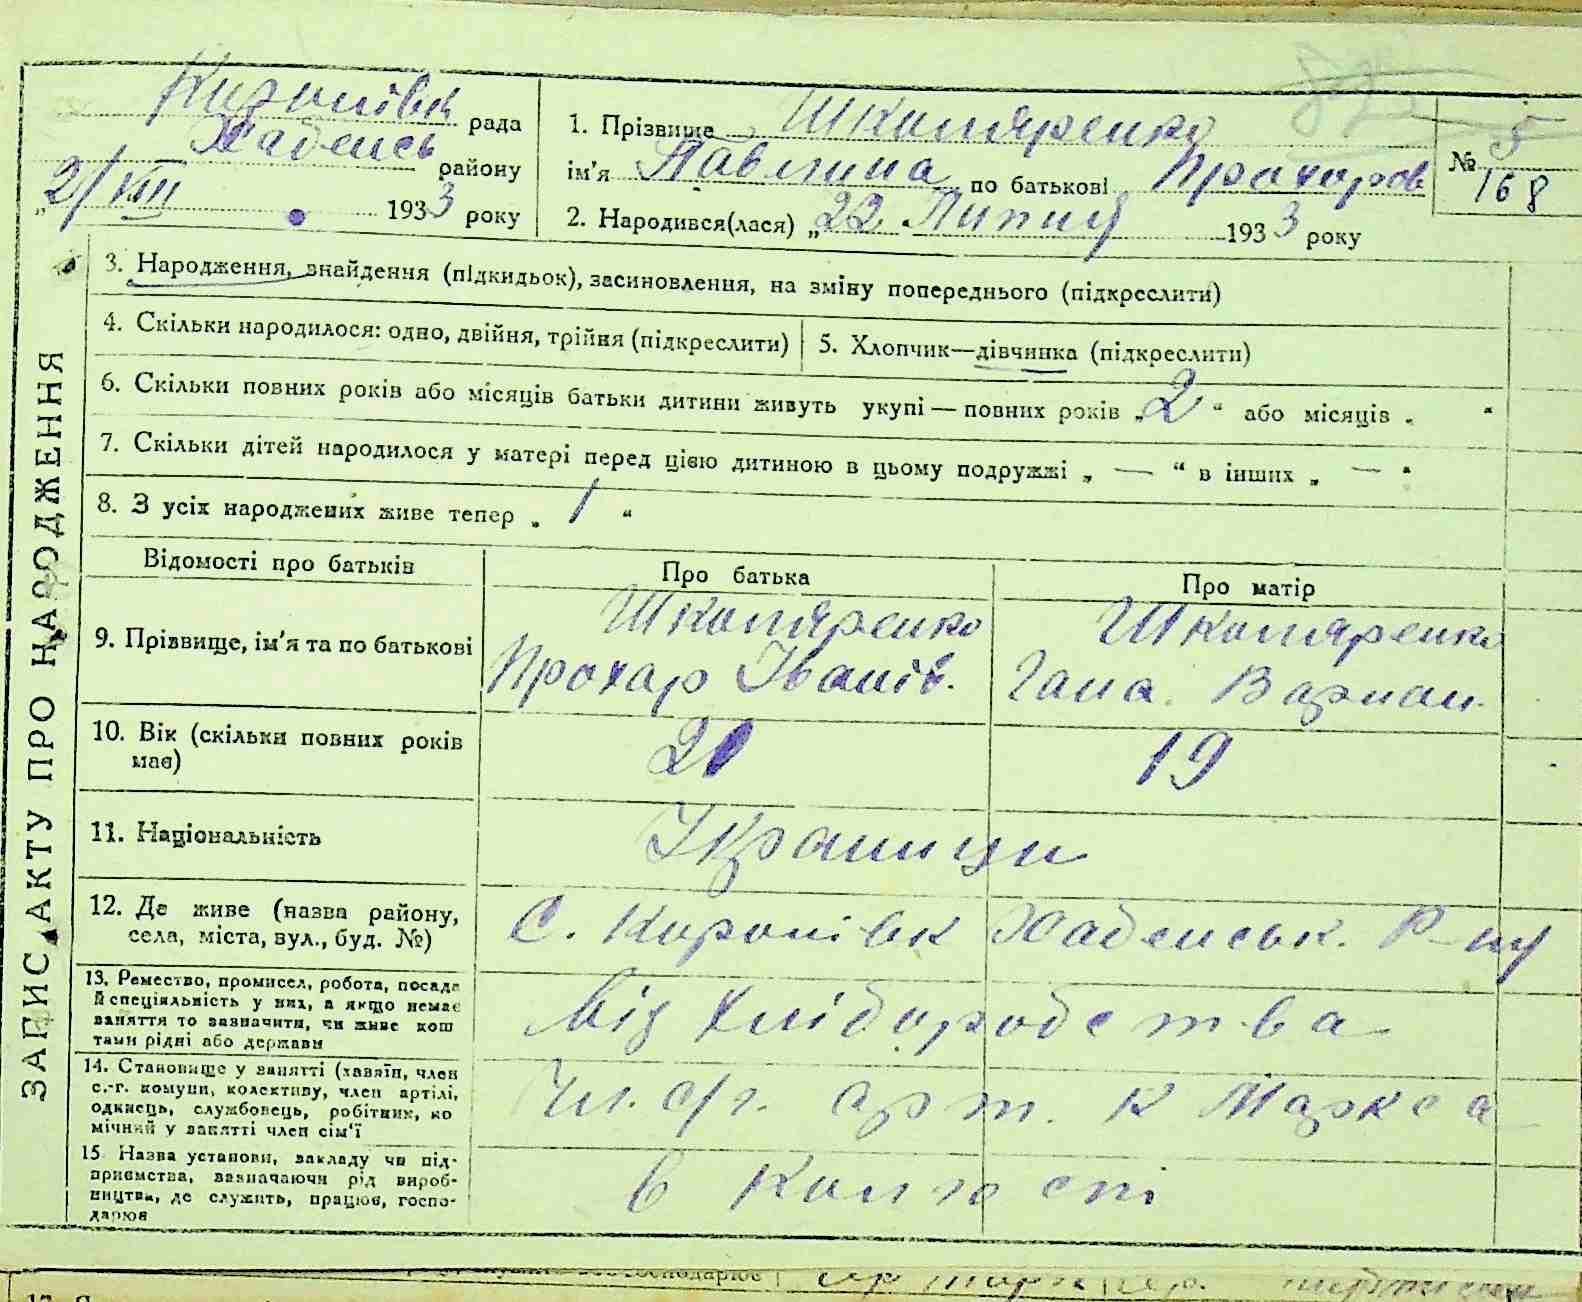 Каранівк рада
Хабенсь району
„2/VIII 1933 року
1. Прізвище Школяренко
ім'я Павлина по батькові Прохоров
2. Народився(лася) „22 Липня 1933 року
№ 5
168
ЗАПИС АКТУ ПРО НАРОДЖЕННЯ
3. Народження, знайдення (підкидьок), засиновлення, на зміну попереднього (підкреслити)
4. Скільки народилося: одно, двійня, трійня (підкреслити)
5. Хлопчик—дівчинка (підкреслити)
6. Скільки повних років або місяців батьки дитини живуть укупі — повних років „2“ або місяців „ “
7. Скільки дітей народилося у матері перед цією дитиною в цьому подружжі „—“ в інших „—“
8. З усіх народжених живе тепер „1“
Відомості про батьків
Про батька
Про матір
9. Прізвище, ім'я та по батькові
Школяренко
Прохар Іванів.
Школяренко
Гана.
10. Вік (скільки повних років
має)
21
19
11. Національність
Українци
12. Де живе (назва району,
села, міста, вул., буд. №)
С. Каранівк Хабенськ. Р-ну
13. Ремество, промисел, робота, посада
й спеціяльність у них, а якщо немає
заняття то зазначити, чи живе кош
тами рідні або держави
від хліборобства
14. Становище у занятті (хазяїн, член
с.-г. комуни, колективу, член артілі,
одинець, службовець, робітник, по
мічний у занятті член сім'ї
Чл. с/г. арт. К Маркса
15 Назва установи, закладу чи під-
приємства, зазначаючи рід вироб-
ництва, де служить, працює, госпо-
дарює
в колгоспі